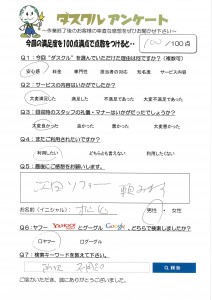 ダスクル アンケート
～作業終了後のお客様の率直な感想をぜひお聞かせ下さい～
今回の満足度を100点満点で点数をつけると・・ 100／100点
Q1：今回“ダスクル”を選んでいただけた理由は何ですか？（複数可）
安心感 料金 専門性 担当者の対応 知名度 サービス内容
Q2：サービスの内容はいかがでしたか？
大変満足した 満足した 不満足であった 大変不満足であった
Q3：訪問時のスタッフの礼儀・マナーはいかがだったでしょうか？
大変良かった 良かった 悪かった 大変悪かった
Q4：またご利用されたいですか？
利用したい どちらとも言えない 利用したくない
Q5：最後にご感想をお願いします。
頼みます
お名前（イニシャル）：
男性 ・ 女性
Q6：ヤフー YAHOO! とグーグル Google、どちらで検索しましたか？
ロヤフー ログーグル
Q7：検索キーワードを教えて下さい。
検索
ご協力いただき、誠にありがとうございました。